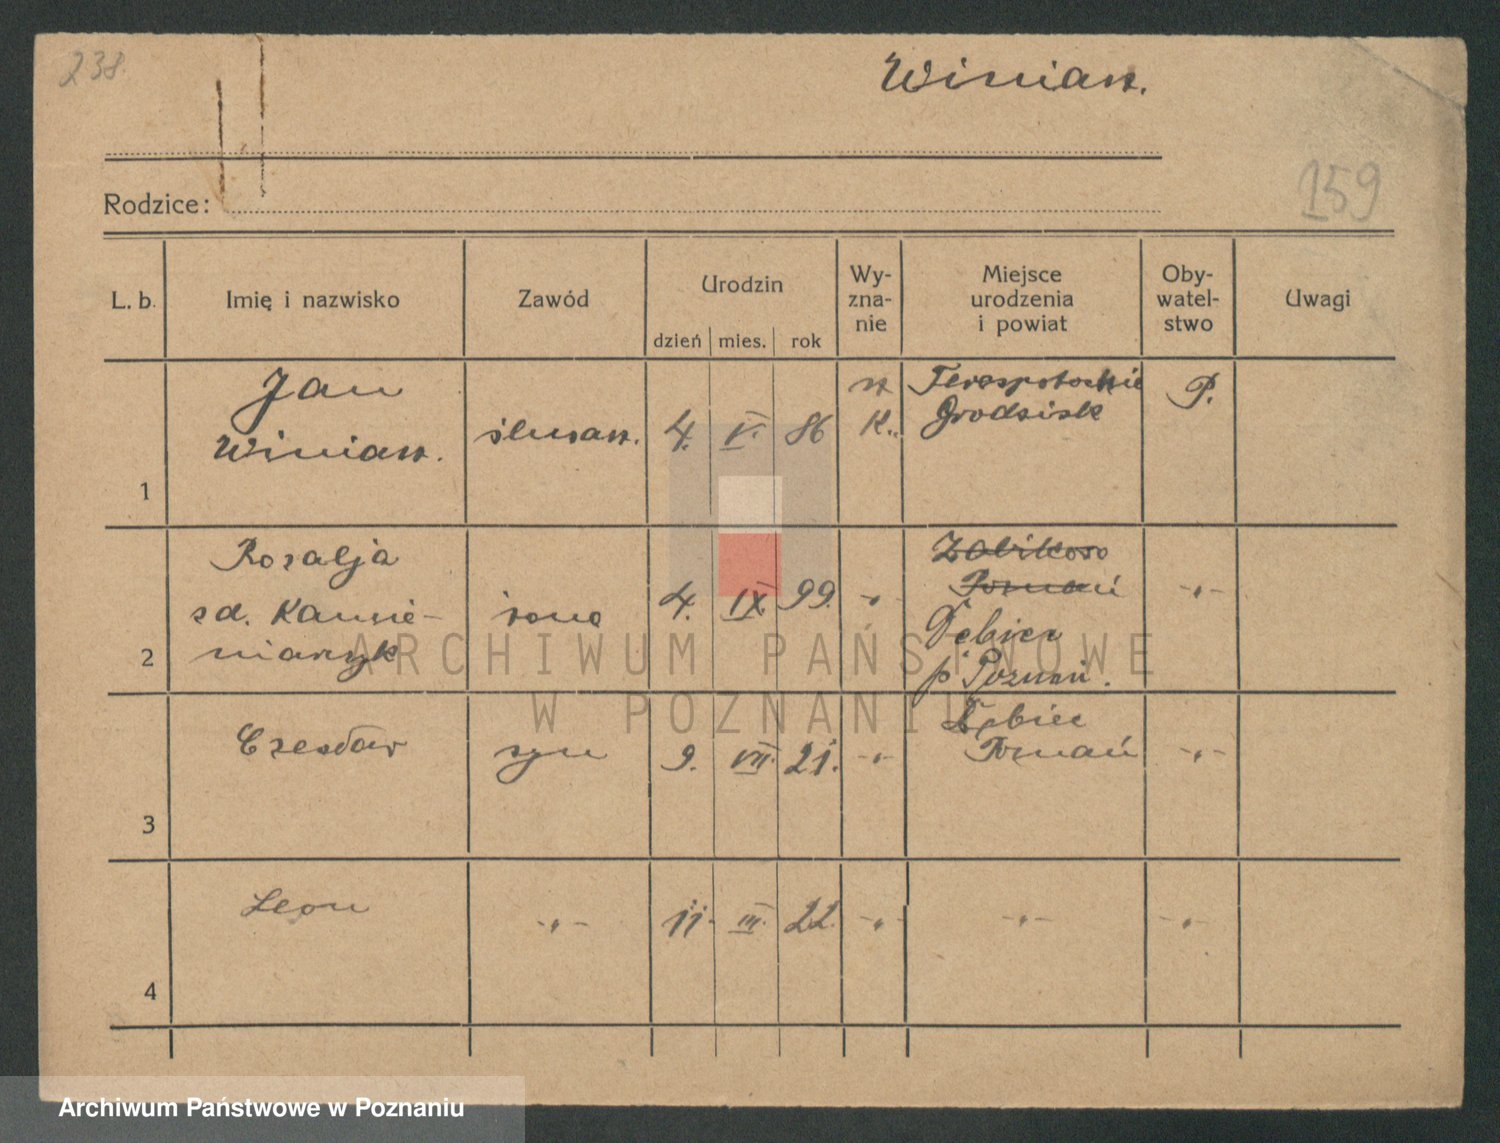 238.
Winiarz.
159
Rodzice:
L. b. Imię i nazwisko Zawód Urodzin dzień mies. rok Wy-zna-nie Miejsce urodzenia i powiat Oby-watel-stwo Uwagi
1 Jan Winiarz. ślusarz. 4. V. 86 rz K.. Grodzisk P.
2 Rozalja zd. Kamie-niarzyk żona 4. IX. 99. -„- Żabikowo Poznań Dębiec p Poznań. -„-
3 Czesław syn 9. VII. 21. -„- Dębiec Poznań -„-
4 Leon -„- 11. III. 22. -„- -„- -„-
ARCHIWUM PAŃSTWOWE
W POZNANIU
Archiwum Państwowe w Poznaniu